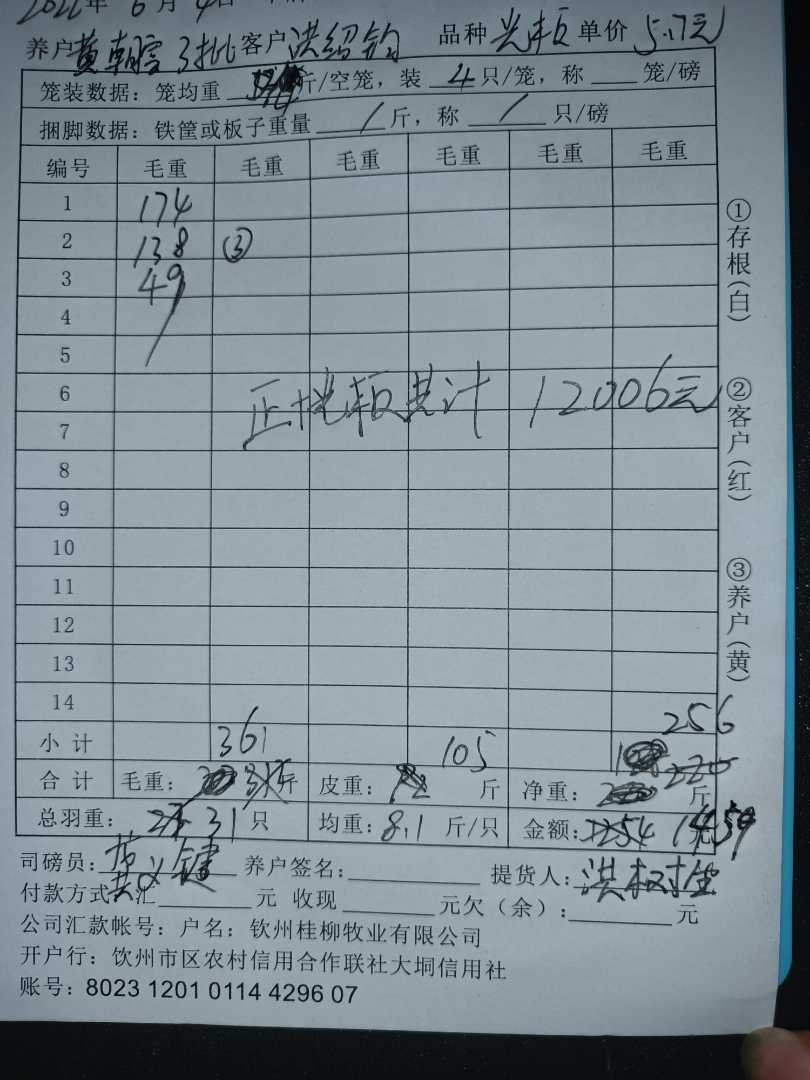 2022年 6月 4日
养户 黄朝 3批 客户 洪绍钧 品种 光板 单价 5.7元
笼装数据：笼均重 斤/空笼，装 4 只/笼，称 笼/磅
捆脚数据：铁筐或板子重量 / 斤，称 / 只/磅
编号 毛重 毛重 毛重 毛重 毛重 毛重
1 174
2 138 ③
3 49
4
5
6
正 板共计 12006元
7
8
9
10
11
12
13
14
256
小计 361 105
220
合计 毛重： 斤 皮重： 斤 净重： 斤
总羽重： 31 只 均重：8.1 斤/只 金额： 1459 元
司磅员： 黄义健 养户签名： 提货人：洪树
付款方式：汇 元 收现 元欠（余）： 元
公司汇款帐号：户名：钦州桂柳牧业有限公司
开户行：钦州市区农村信用合作联社大垌信用社
账号：8023 1201 0114 4296 07
①存根（白）
②客户（红）
③养户（黄）